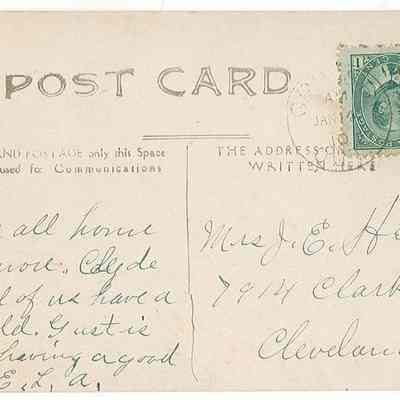 POST CARD
AND POSTAGE only this Space
used for Communications
THE ADDRESS
WRITTEN HERE
all home
Clyde
of us have a
ld. Gust is
having a good
E. L. A.
Mrs J. E. He
7914 Clark
Cleveland
JAN